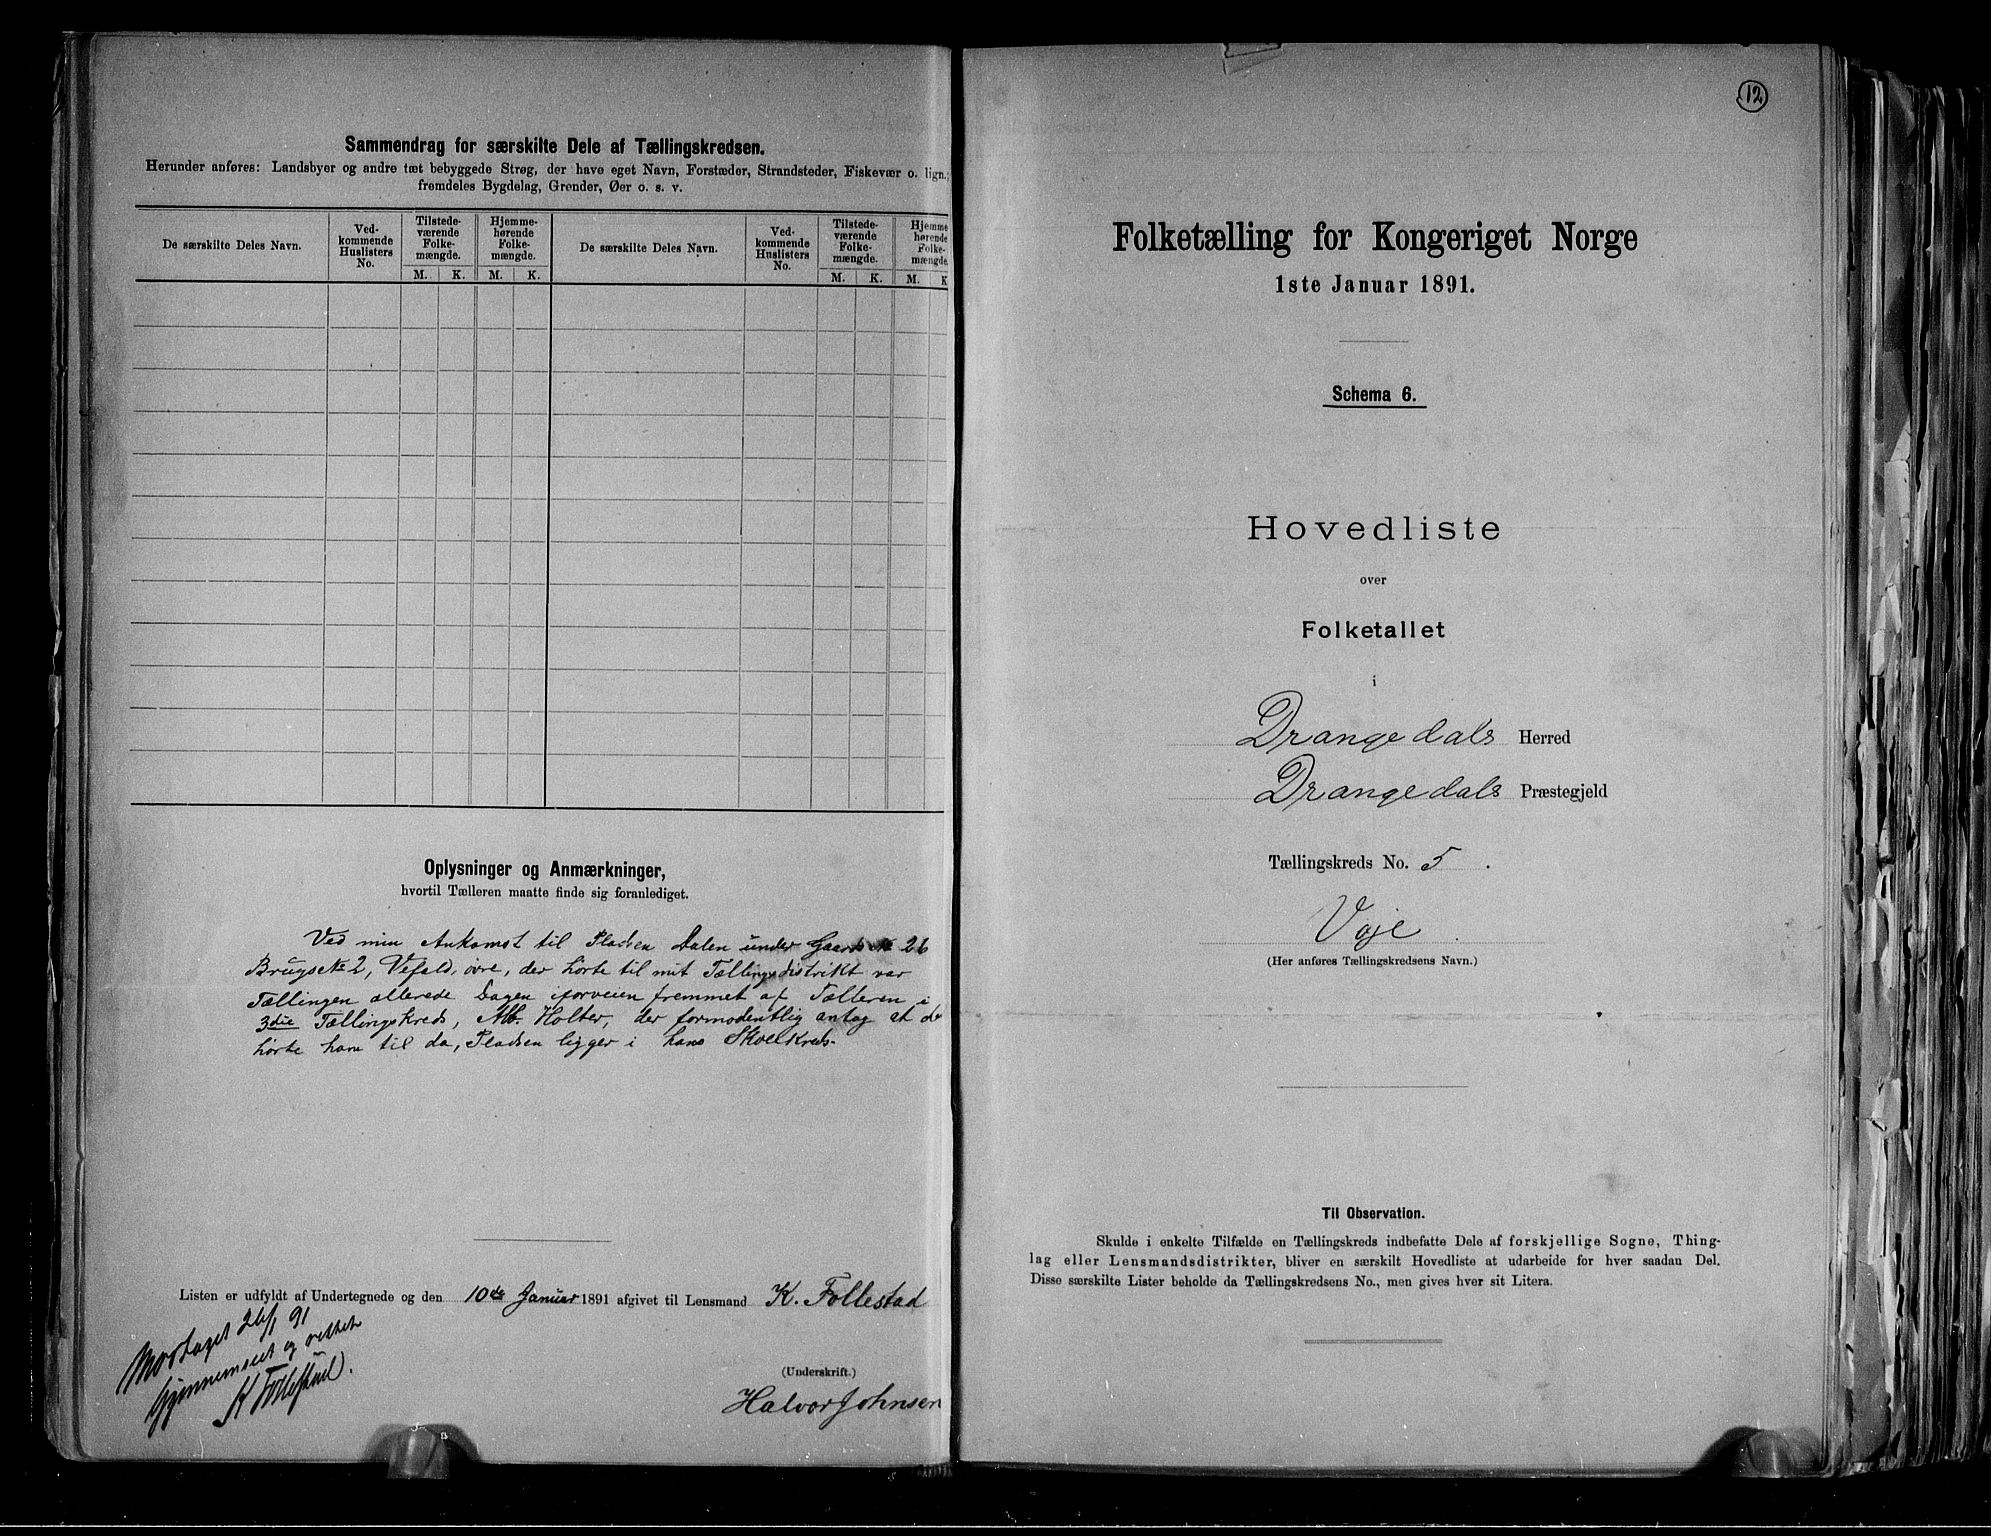 Sammendrag for særskilte Dele af Tællingskredsen.
Herunder anføres: Landsbyer og andre tæt bebyggede Strøg, der have eget Navn, Forstæder, Strandsteder, Fiskevær o. lign.;
fremdeles Bygdelag, Grender, Øer o. s. v.
De særskilte Deles Navn.
Ved-
kommende
Huslisters
No.
Tilstede-
værende
Folke-
mængde.
Hjemme-
hørende
Folke-
mængde.
M. K. M. K.
De særskilte Deles Navn.
Ved-
kommende
Huslisters
No.
Tilstede-
værende
Folke-
mængde.
Hjemme-
hørende
Folke-
mængde.
M. K. M. K
Oplysninger og Anmærkninger,
hvortil Tælleren maatte finde sig foranlediget.
Ved min Ankomst til Pladsen Dalen under Gaards № 26
Brugs № 2, Vefald, øvre, der hørte til mit Tællingsdistrikt var
Tællingen allerede Dagen iforveien fremmet af Tælleren i
3die Tællingskreds, Holter, der formodentlig antog at de
hørte ham til da Pladsen ligger i hans Skolekreds.
Listen er udfyldt af Undertegnede og den 10de Januar 1891 afgivet til Lensmand K. Follestad
Modtaget 26/1 91
Gjennemseet og rettet
K Follestad.
(Underskrift.)
Halvor Johnsen
12
Folketælling for Kongeriget Norge
1ste Januar 1891.
Schema 6.
Hovedliste
over
Folketallet
i
Drangedals Herred
Drangedals Præstegjeld
Tællingskreds No. 5.
Voje
(Her anføres Tællingskredsens Navn.)
Til Observation.
Skulde i enkelte Tilfælde en Tællingskreds indbefatte Dele af forskjellige Sogne, Thing-
lag eller Lensmandsdistrikter, bliver en særskilt Hovedliste at udarbeide for hver saadan Del.
Disse særskilte Lister beholde da Tællingskredsens No., men gives hver sit Litera.